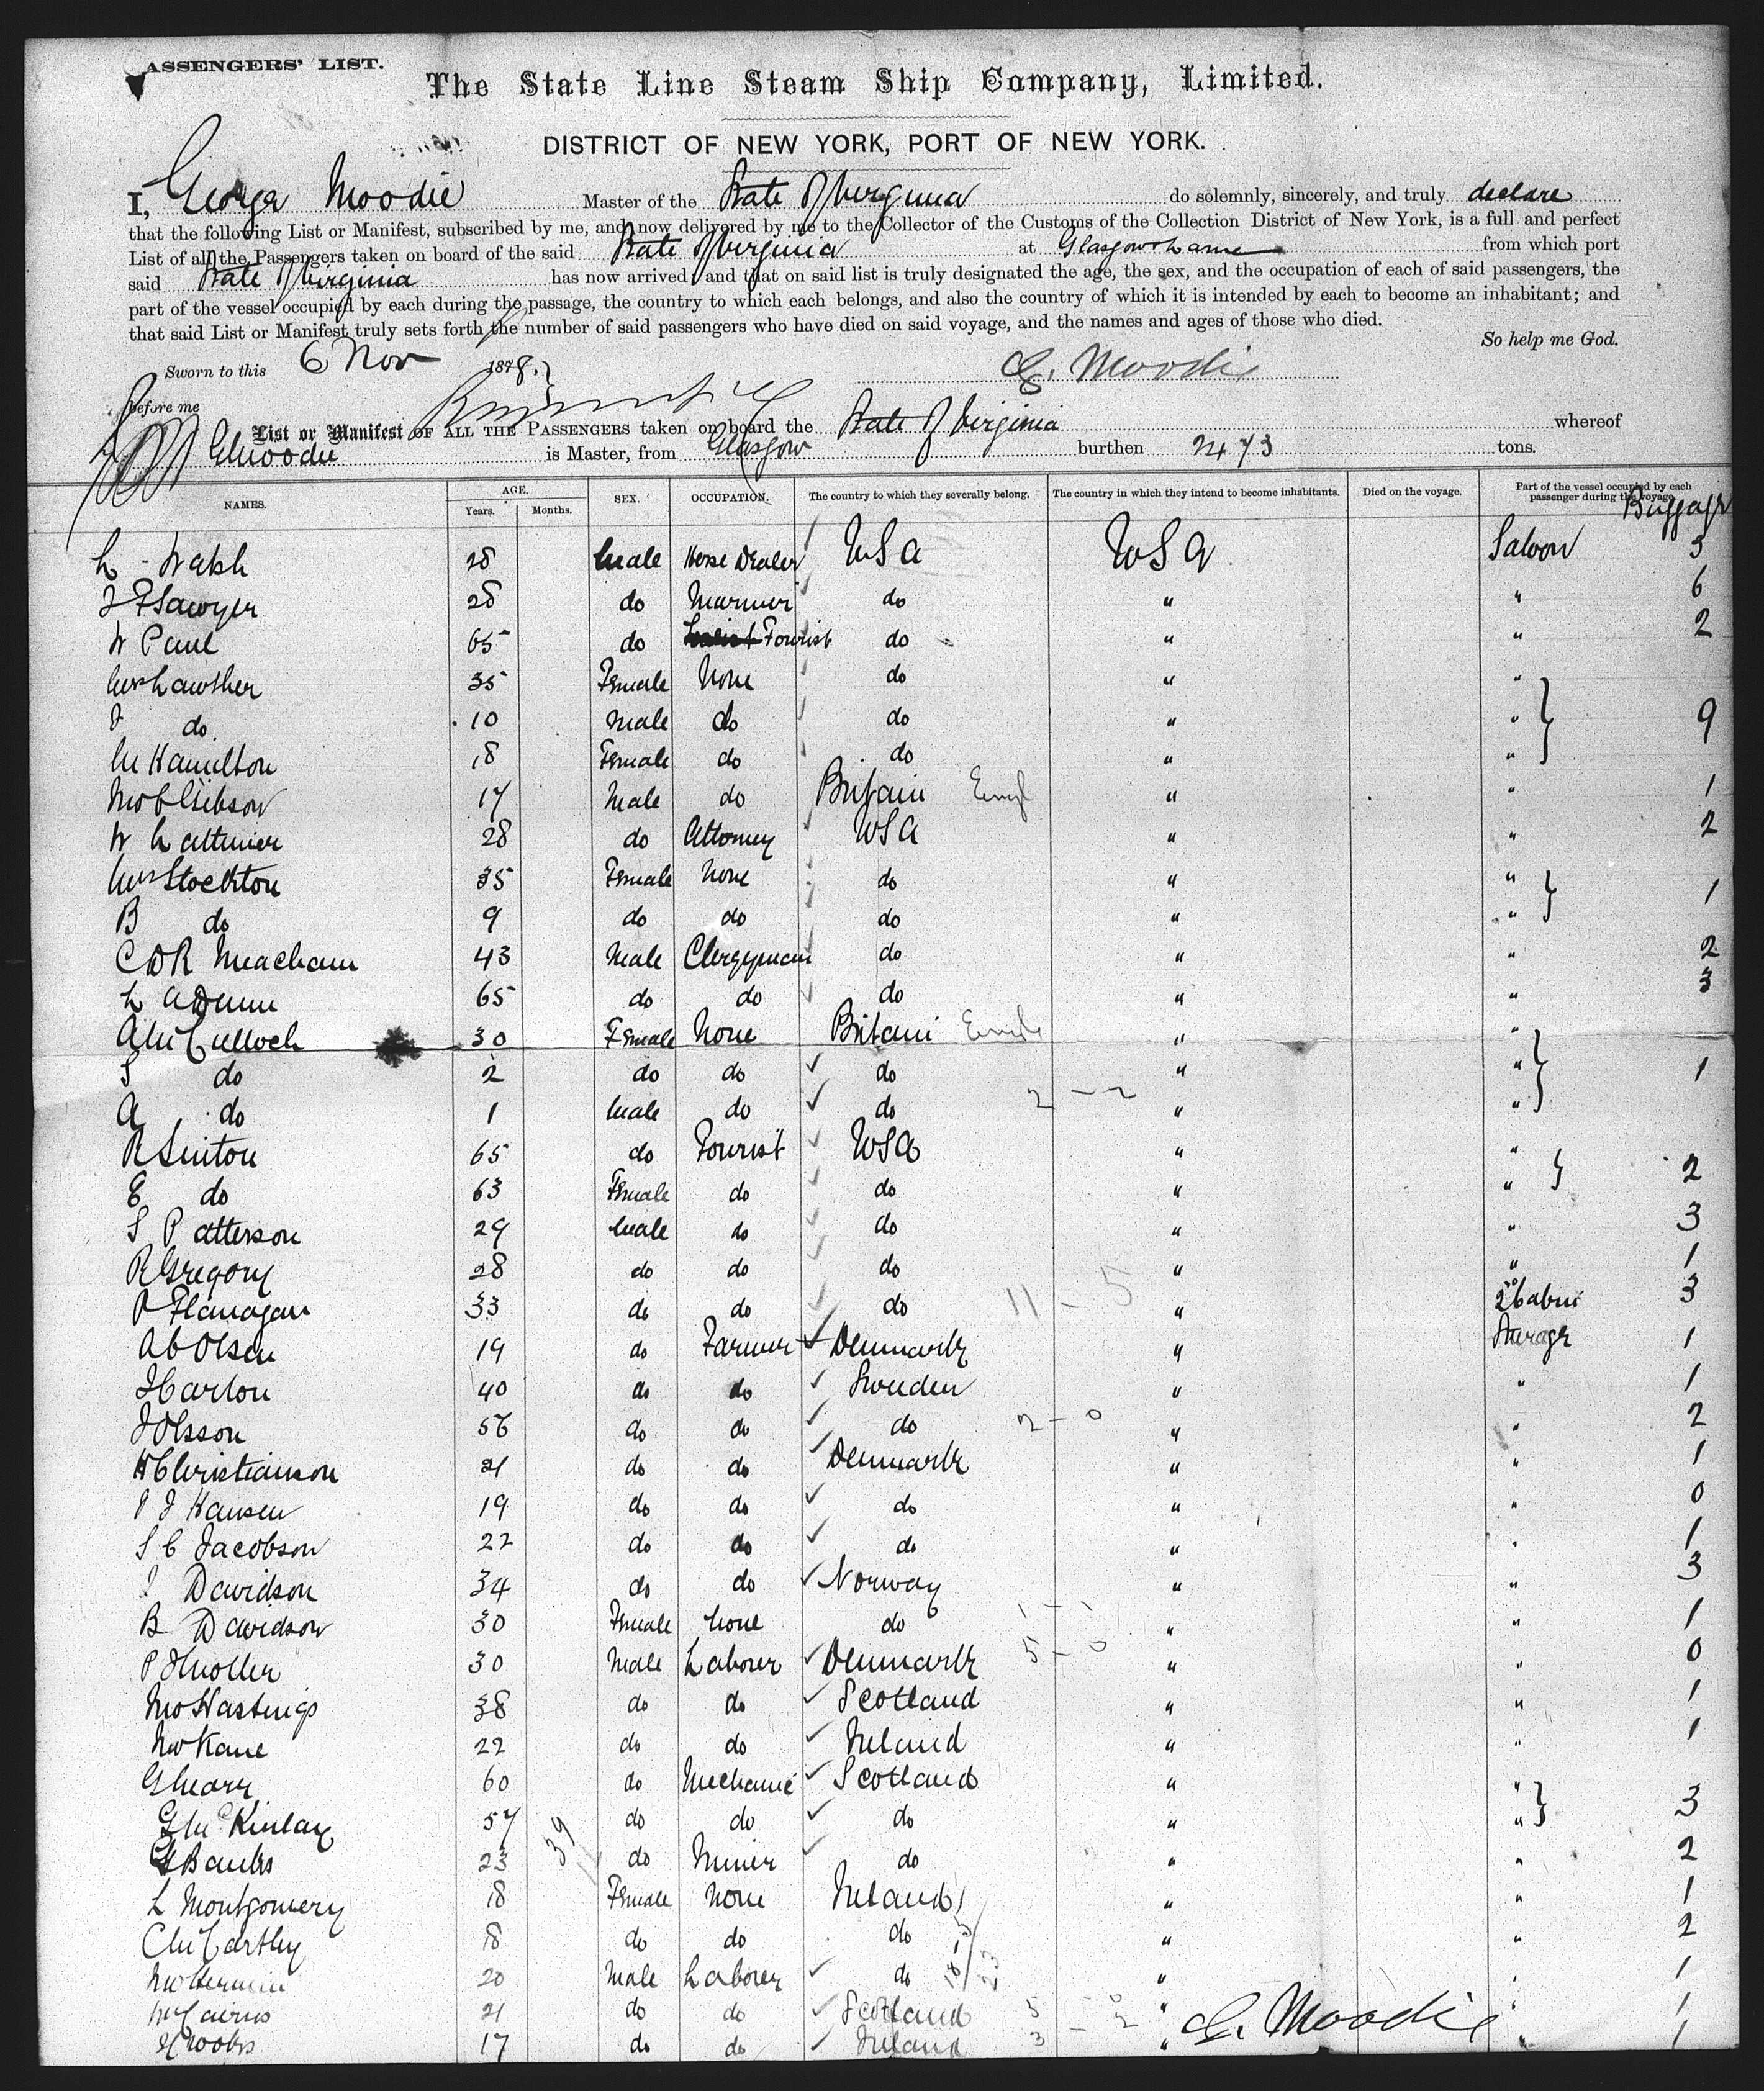 PASSENGERS' LIST.
The State Line Steam Ship Company, Limited.
DISTRICT OF NEW YORK, PORT OF NEW YORK.
I, George Moodie Master of the State of Virginia do solemnly, sincerely, and truly declare
that the following List or Manifest, subscribed by me, and now delivered by me to the Collector of the Customs of the Collection District of New York, is a full and perfect
List of all the Passengers taken on board of the said State of Virginia at Glasgow & Larne from which port
said State of Virginia has now arrived and that on said list is truly designated the age, the sex, and the occupation of each of said passengers, the
part of the vessel occupied by each during the passage, the country to which each belongs, and also the country of which it is intended by each to become an inhabitant; and
that said List or Manifest truly sets forth the number of said passengers who have died on said voyage, and the names and ages of those who died.
So help me God.
Sworn to this 6 Nov 1878.
G. Moodie
before me
List or Manifest OF ALL THE PASSENGERS taken on board the State of Virginia whereof
G Moodie is Master, from Glasgow burthen 2473 tons.
NAMES. AGE. Years. Months. SEX. OCCUPATION. The country to which they severally belong. The country in which they intend to become inhabitants. Died on the voyage. Part of the vessel occupied by each passenger during the voyage. Baggage
L Walsh 28 Male Horse Dealer USA USA Saloon 3
J F Sawyer 28 do Mariner do " " 6
W Paul 65 do Tourist do " " 2
Mrs Lawther 35 Female None do " "
J do 10 Male do do " " 9
M Hamilton 18 Female do do " "
Gibson 17 Male do Britain Engl " " 1
W Lattimer 28 do Attorney USA " " 2
Mrs Stockton 35 Female None do " "
B do 9 do do do " " 1
C D R Meacham 43 Male Clergyman do " " 2
L A Dunn 65 do do do " " 3
A McCulloch 30 Female None Britain " "
S do 2 do do do " " 1
A do 1 Male do do 2 - 2 " "
R Sinton 65 do Tourist USA " "
E do 63 Female do do " " 2
S Patterson 29 Male do do " " 3
R Gregory 28 do do do " " 1
P Flanagan 33 do do do 11 - 5 " 2 Cabin 3
A C Olsen 19 do Farmer Denmark " Steerage 1
J Carlon 40 do do Sweden " " 1
J Olsson 56 do do do 2 - 0 " " 2
H Christianson 21 do do Denmark " " 1
P J Hansen 19 do do do " " 0
S C Jacobson 22 do do do " " 1
J Davidson 34 do do Norway " " 3
B Davidson 30 Female None do 1 - 1 " " 1
P J Moller 30 Male Laborer Denmark 5 - 0 " " 0
Hastings 38 do do Scotland " " 1
Kane 22 do do Ireland " " 1
G 60 do Mechanic Scotland " "
G McKinlay 57 do do do " " 3
G Banks 23 39 do Miner do " " 2
L Montgomery 18 Female None Ireland " " 1
C McCarthy 18 do do do " " 2
20 Male Laborer do " " 1
Cairns 21 do do Scotland 5 - 0 " " 1
17 do do Ireland 3 - 2 " " 1
G. Moodie